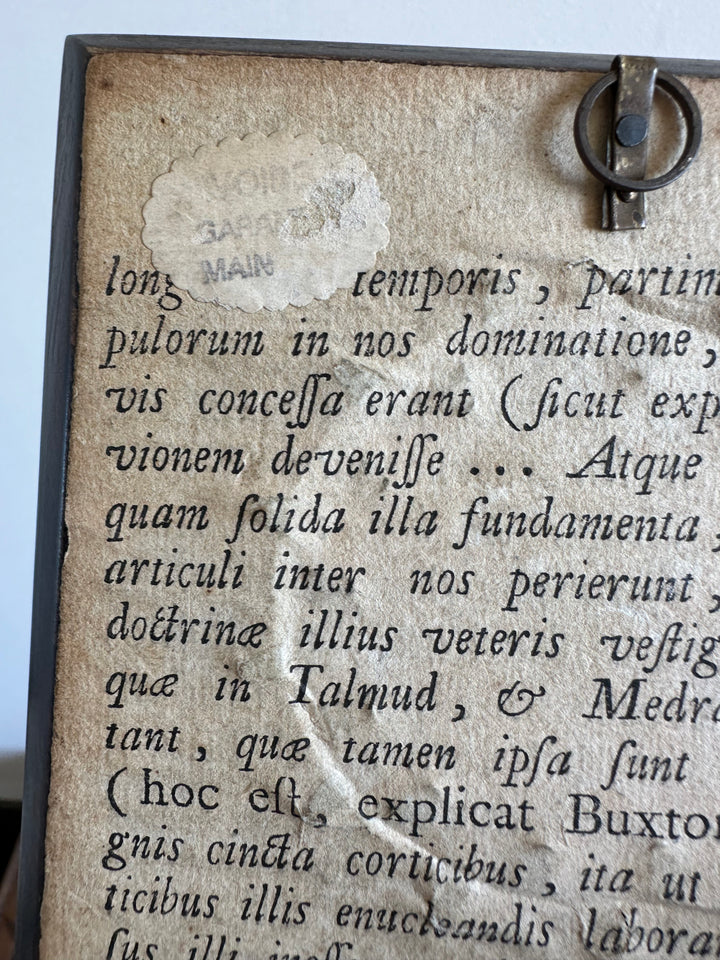 MAIN
long temporis, partim
pulorum in nos dominatione,
vis conceſſa erant (ſicut exp
vionem deveniſſe ... Atque
quam ſolida illa fundamenta,
articuli inter nos perierunt,
doctrinæ illius veteris veſtig
quæ in Talmud, & Medra
tant, quæ tamen ipſa ſunt
(hoc eſt, explicat Buxto
gnis cincta corticibus, ita ut
ticibus illis enucleandis labora
ſus illi